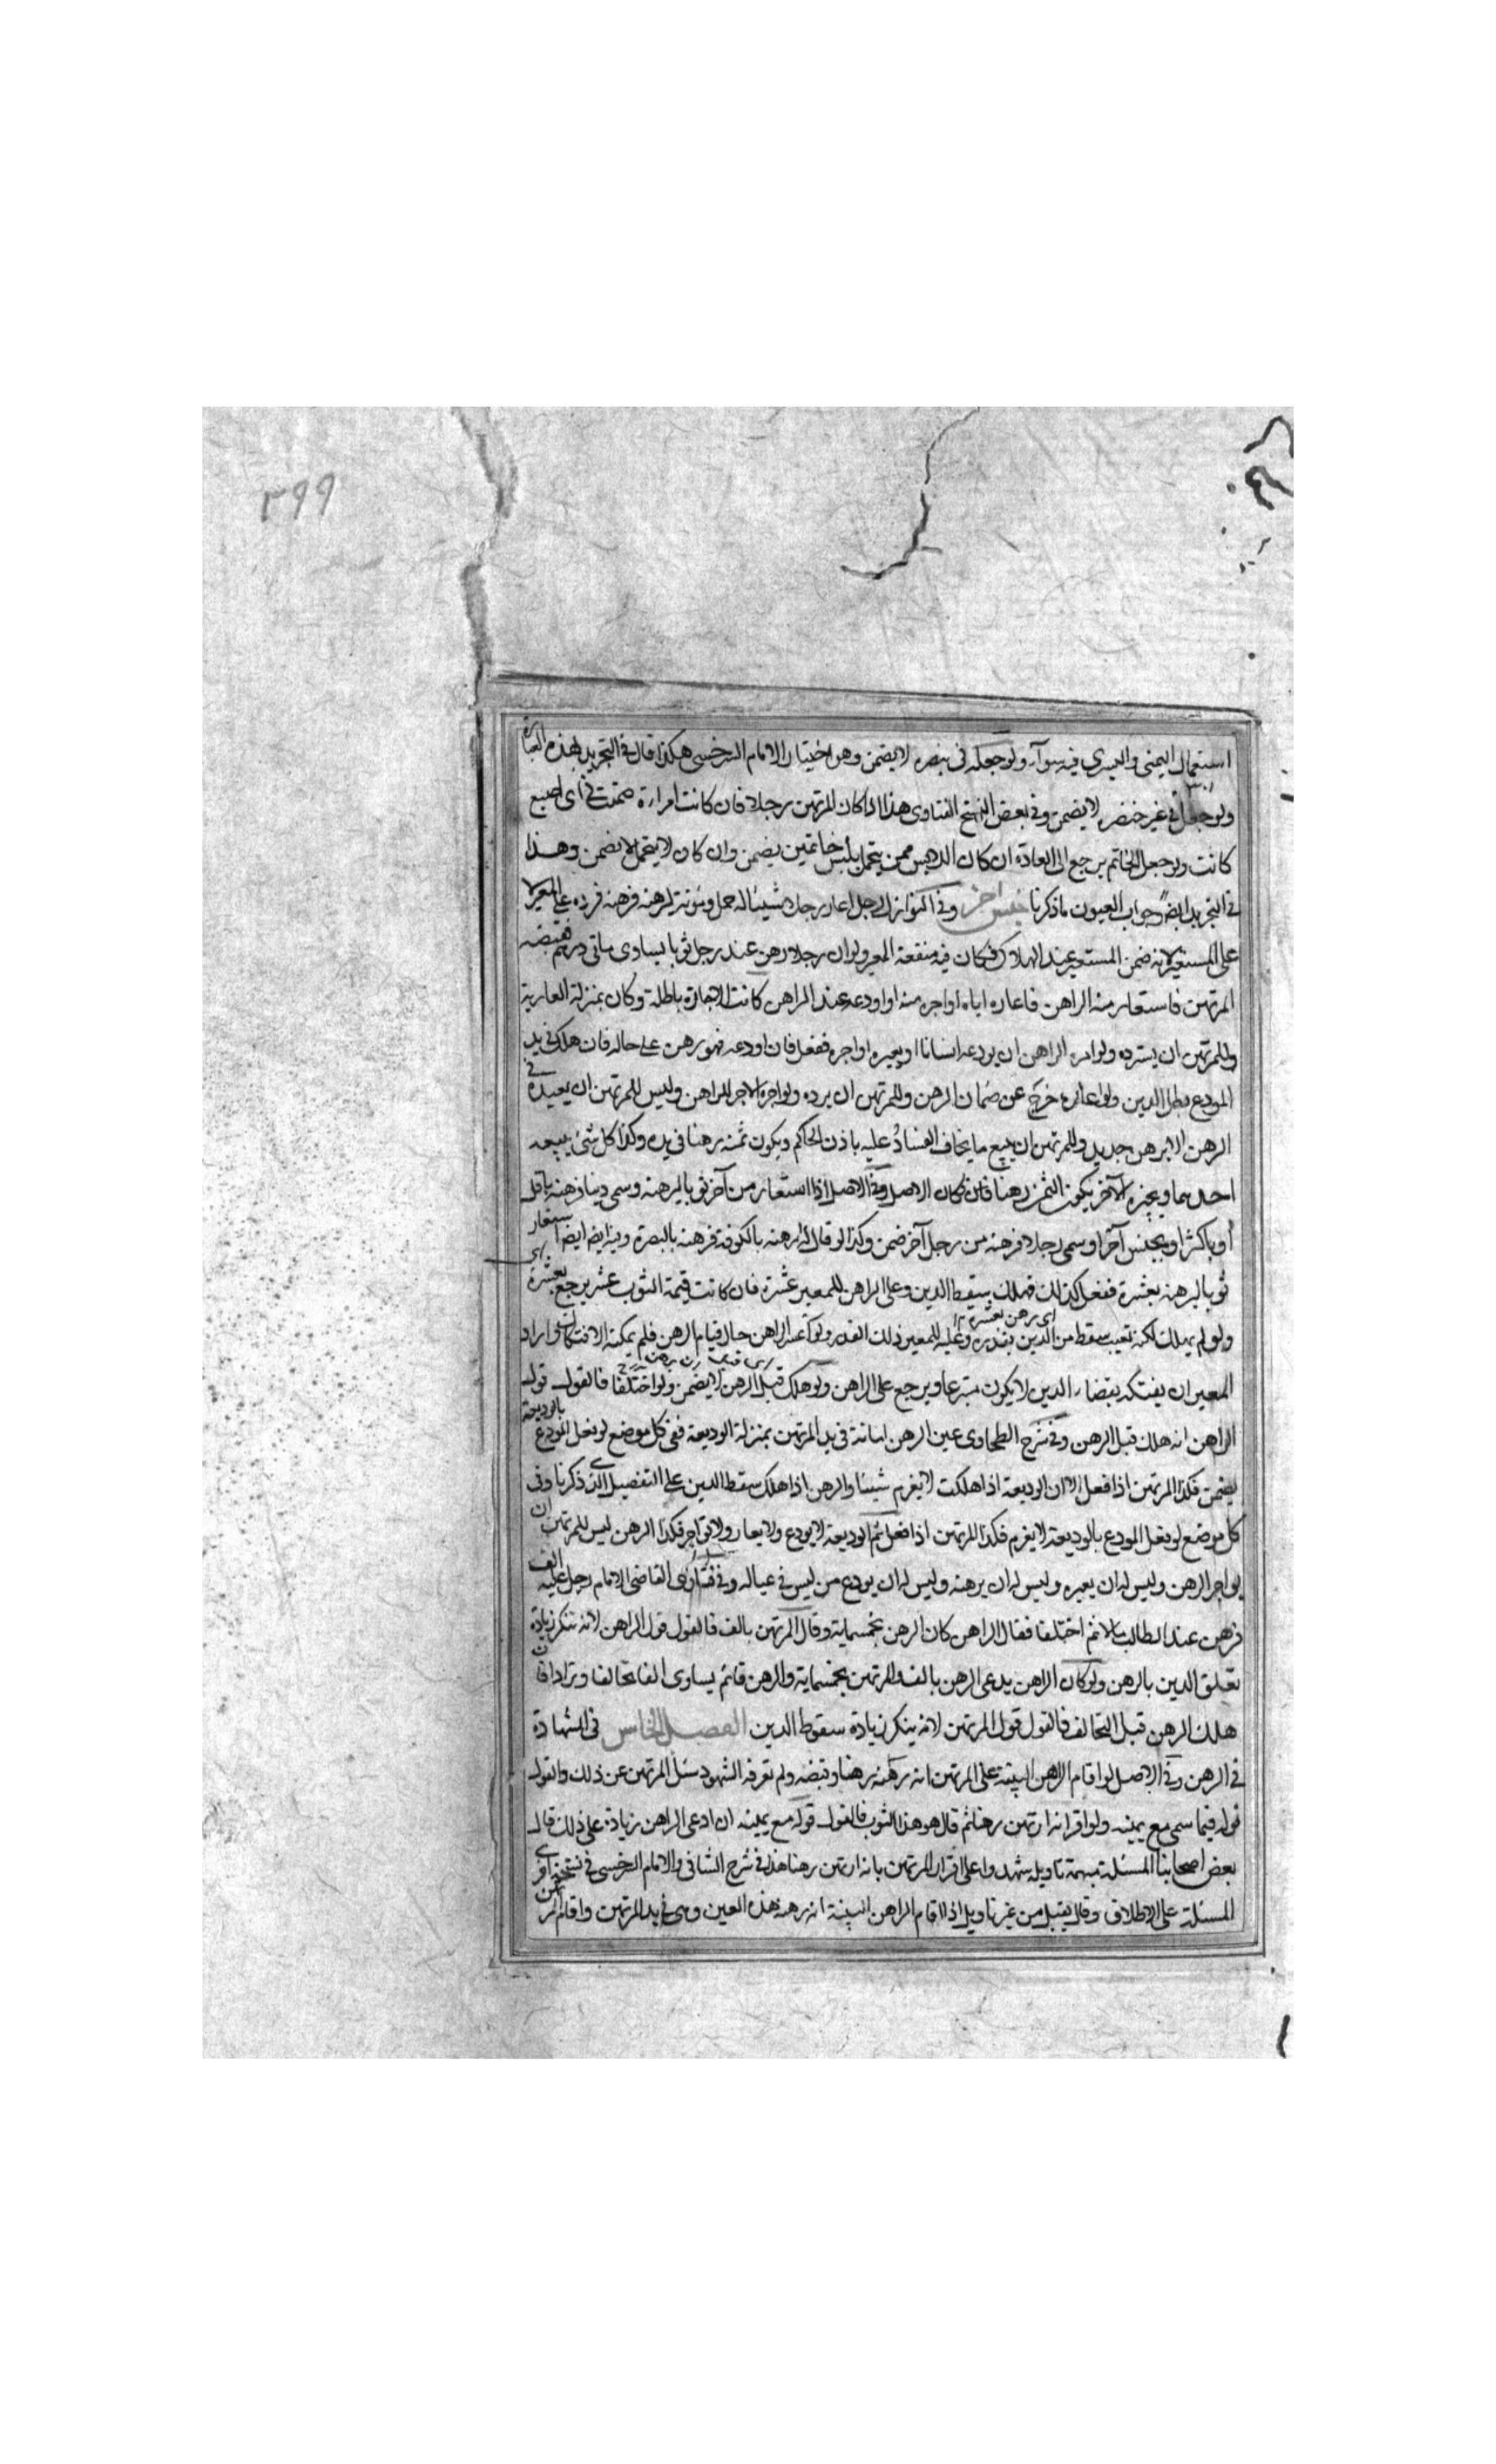 ٢٩٩
استعمال اليمنى واليسرى فيه سوآء ولو جعله فى بنصره لا يضمن وهو اختيار الامام السرخسى هكذا قال فى التجريد بهذه العبارة
ولو جعل فى غير خنصره لا يضمن وفى بعض النسخ الفتاوى هذا اذا كان المرتهن رجلا فان كانت امراءة ضمنت فى اى اصبع
كانت ولو جعل الخاتم يرجع الى العادة ان كان اللابس ممن يتجمل بلبس خاتمين يضمن وان كان لا يتجمل لا يضمن وهذا
فى التجريد ايضا وجواب العيون ما ذكرنا جنس آخر وفى النوازل رجل اعار رجلا شيئا له حمل ومؤنة ليرهنه فرهنه فرده على المعير لا
على المستعير لانه ضمن المستعير عند الهلاك فكان فيه منفعة المعير ولو ان رجلا رهن عند رجل ثوبا يساوى مأتى درهم فقبضه
المرتهن فاستعار منه الراهن فاعاره اياه او اجره منه او اودعه عند الراهن كانت الاجارة باطلة وكان بمنزلة العارية
وللمرتهن ان يسترده ولو امره الراهن ان يودعه انسانا او يعيره او اجره ففعل فان اودعه فهو رهن على حاله فان هلك فى يد
المودع بطل الدين ولو اعاره خرج عن ضمان الرهن وللمرتهن ان يرده ولو اجره الاجر للراهن وليس للمرتهن ان يعيده فى
الرهن الا برهن جديد وللمرتهن ان يبيع ما يخاف الفساد عليه باذن الحاكم ويكون ثمنه رهنا فى يده وكذا كل شئ يبيعه
احدهما ويجيزه الآخر يكون الثمن رهنا فان كان الاصل وفى الاصل اذا استعار من آخر ثوبا ليرهنه وسمى دينا فرهنه باقل
او باكثر او بجنس آخر او سمى رجلا فرهنه من رجل آخر ضمن وكذا لو قال له ارهنه بالكوفة فرهنه بالبصرة وفيه ايضا استعار
ثوبا ليرهنه بعشرة ففعل كذلك فهلك سقط الدين وعلى الراهن للمعير عشرة فان كانت قيمة الثوب عشرين رجع بعشرة
اى برهن بعشرة
ولو لم يهلك لكنه تعيب سقط من الدين بقدره وعليه للمعير ذلك القدر ولو اعسر الراهن حال قيام الرهن فلم يمكنه الافتكاك واراد
المعير ان يفتكه بقضاء الدين لا يكون متبرعا ويرجع على الراهن ولو هلك قبل الرهن لا يضمن ولو اختلفا فالقول قول
الراهن انه هلك قبل الرهن وفى شرح الطحاوى عين الرهن امانة فى يد المرتهن بمنزلة الوديعة ففى كل موضع لو فعل المودع بالوديعة
يضمن فكذا المرتهن اذا فعل الا ان الوديعة اذا هلكت لا يغرم شيئا والرهن اذا هلك سقط الدين على التفصيل الذى ذكرنا وفى
كل موضع لو فعل المودع بالوديعة لا يغرم فكذا المرتهن اذا فعل ثم الوديعة لا يودع ولا يعار ولا يؤاجر فكذا الرهن ليس للمرتهن ان
يواجر الرهن وليس له ان يعيره وليس له ان يرهنه وليس له ان يودع من ليس فى عياله وفى فتاوى القاضى الامام رجل عليه الف
فرهن عند الطالب مالا ثم اختلفا فقال الراهن كان الرهن بخمسماية وقال المرتهن بالف فالقول قول الراهن لانه تنكر زيادة
تعلق الدين بالرهن ولو كان الراهن يدعى الرهن بالف والمرتهن بخمسماية والرهن قائم يساوى الفا تحالفا وترادا فان
هلك الرهن قبل التحالف فالقول قول المرتهن لانه ينكر زيادة سقوط الدين الفصل الخامس فى الشهادة
فى الرهن وفى الاصل لو اقام الراهن البينة على المرتهن انه رهنه رهنا وقبضه ولم تعرفه الشهود سئل المرتهن عن ذلك والقول
قوله فيما سمى مع يمينه ولو اقر انه ارتهن رهنا ثم قال هو هذا الثوب فالقول قوله مع يمينه ان ادعى الراهن زيادة على ذلك قال
بعض اصحابنا المسئلة مبهمة تاويله شهدوا على اقرار المرتهن بانه ارتهن رهنا هذا فى شرح الشافى والامام السرخسى فى نسخته اقر
المسئلة على الاطلاق وقال يقبل من غير تاويل اذا اقام الراهن البينة انه رهنه هذه العين وهى فى يد المرتهن واقام